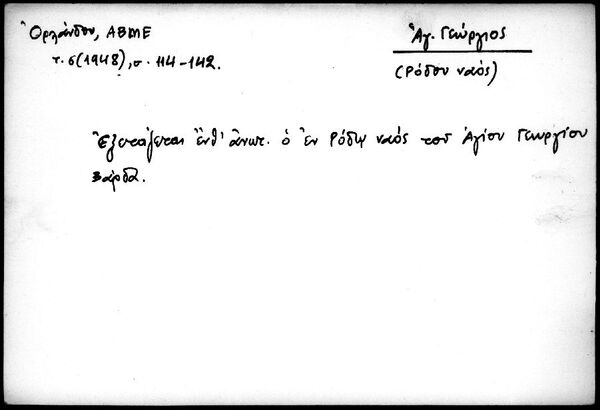 Ὀρλάνδου, ΑΒΜΕ
τ. ς (1948), σ. 114-142.
Ἅγ. Γεώργιος
(Ρόδου ναός)
Ἐξετάζεται ἔνθ' ἄνωτ. ὁ ἐν Ρόδῳ ναός τοῦ Ἁγίου Γεωργίου
Βάρδα.